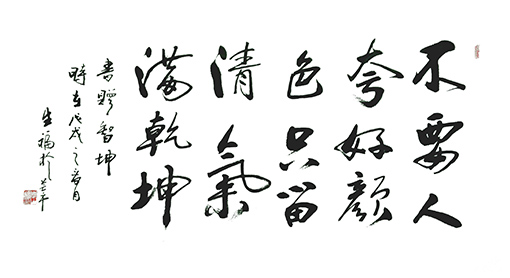 不要人
夸好颜
色只留
清氣
满乾坤
書贈智坤
時在戊戌之春月
生福於